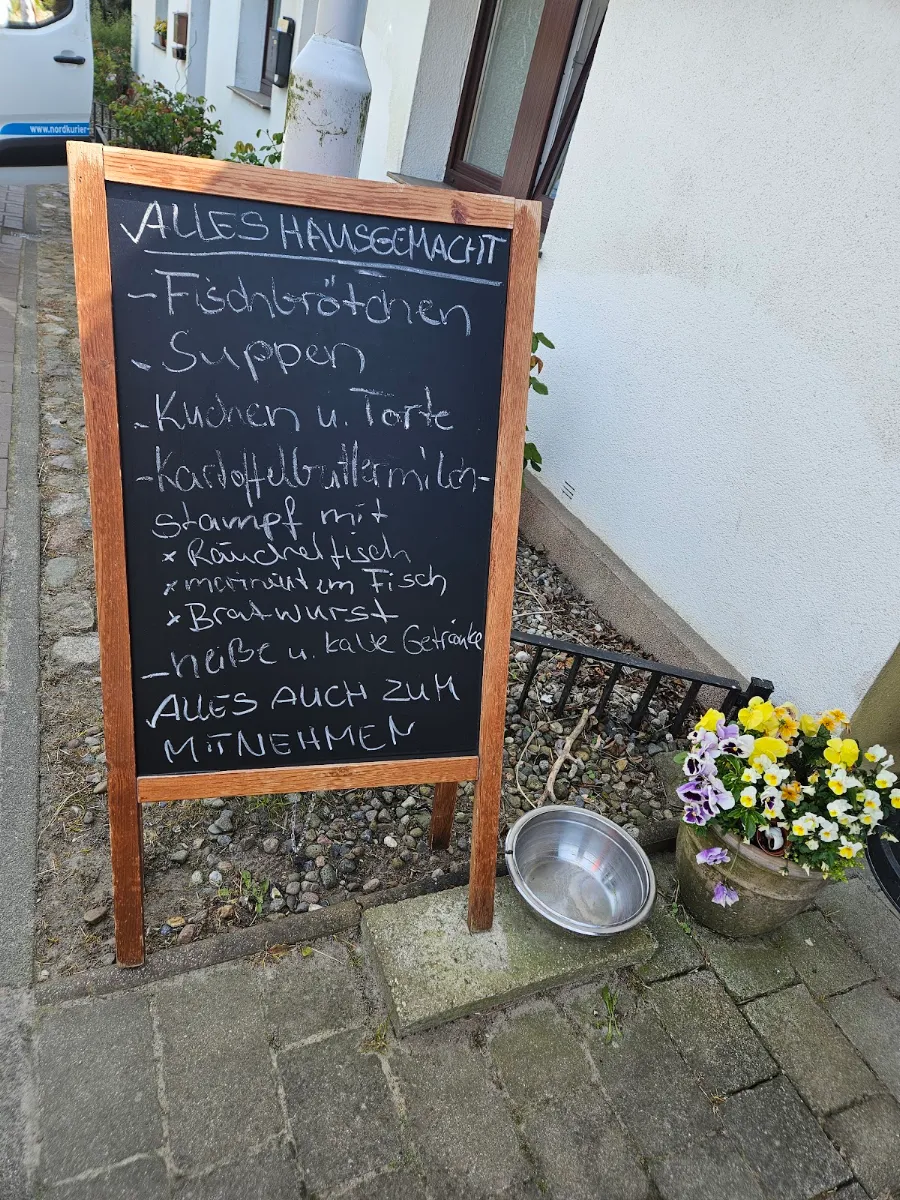 www.nordkurier
ALLES HAUSGEMACHT
- Fischbrötchen
- Suppen
- Kuchen u. Torte
- Kartoffelbuttermilch-
stampf mit
x Räucherfisch
x mariniertem Fisch
x Bratwurst
- heiße u. kalte Getränke
ALLES AUCH ZUM
MITNEHMEN